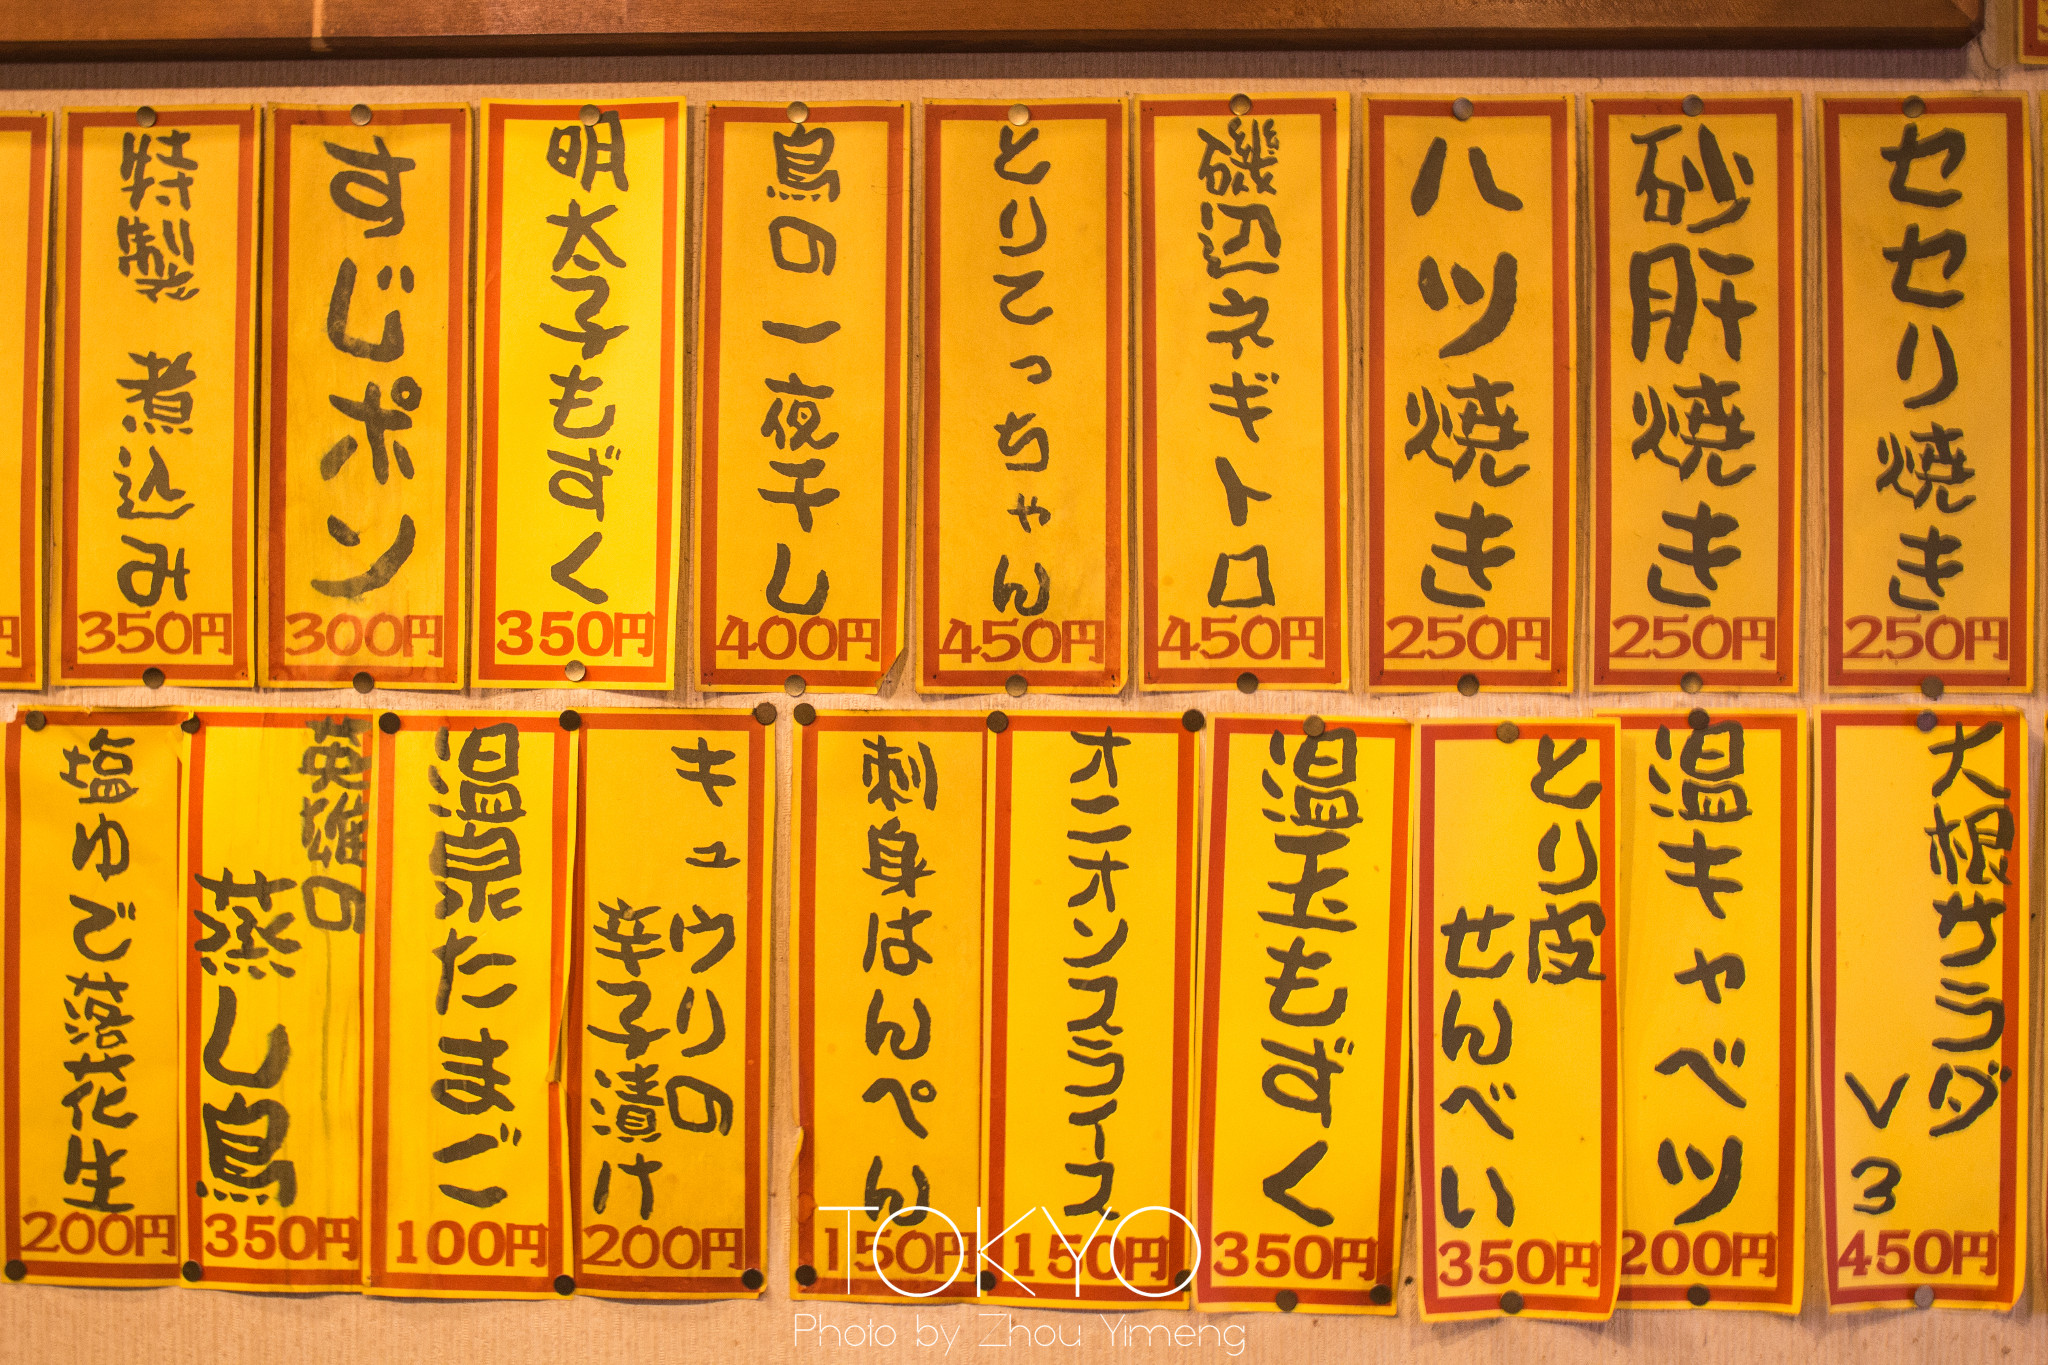 セセリ焼き
250円
砂肝焼き
250円
ハツ焼き
250円
磯辺ネギトロ
450円
とりてっちゃん
450円
鳥の一夜干し
400円
明太子もずく
350円
すじポン
300円
特製 煮込み
350円
円
大根サラダ
V3
450円
温キャベツ
200円
とり皮
せんべい
350円
温玉もずく
350円
オニオンスライス
150円
刺身はんぺん
150円
キュウリの
辛子漬け
200円
温泉たまご
100円
英雄の
蒸し鳥
350円
塩ゆで落花生
200円
TOKYO
Photo by Zhou Yimeng